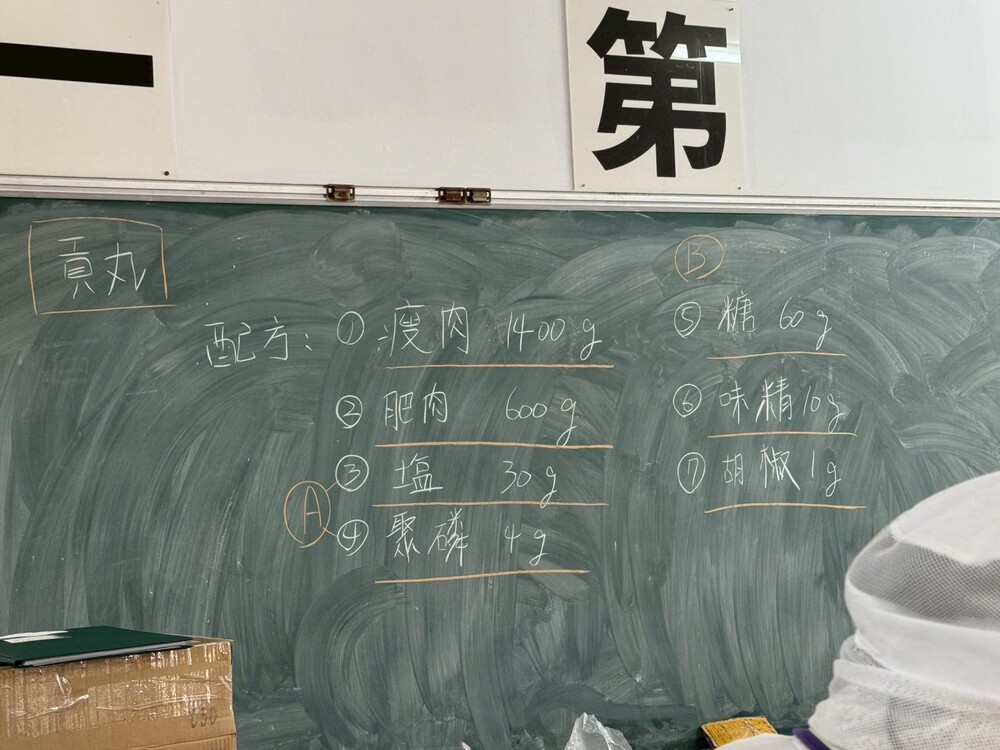 一
第
貢丸
配方: ① 瘦肉 1400g
② 肥肉 600g
③ 塩 30g
④ 聚磷 4g
A
B
⑤ 糖 60g
⑥ 味精 10g
⑦ 胡椒 1g